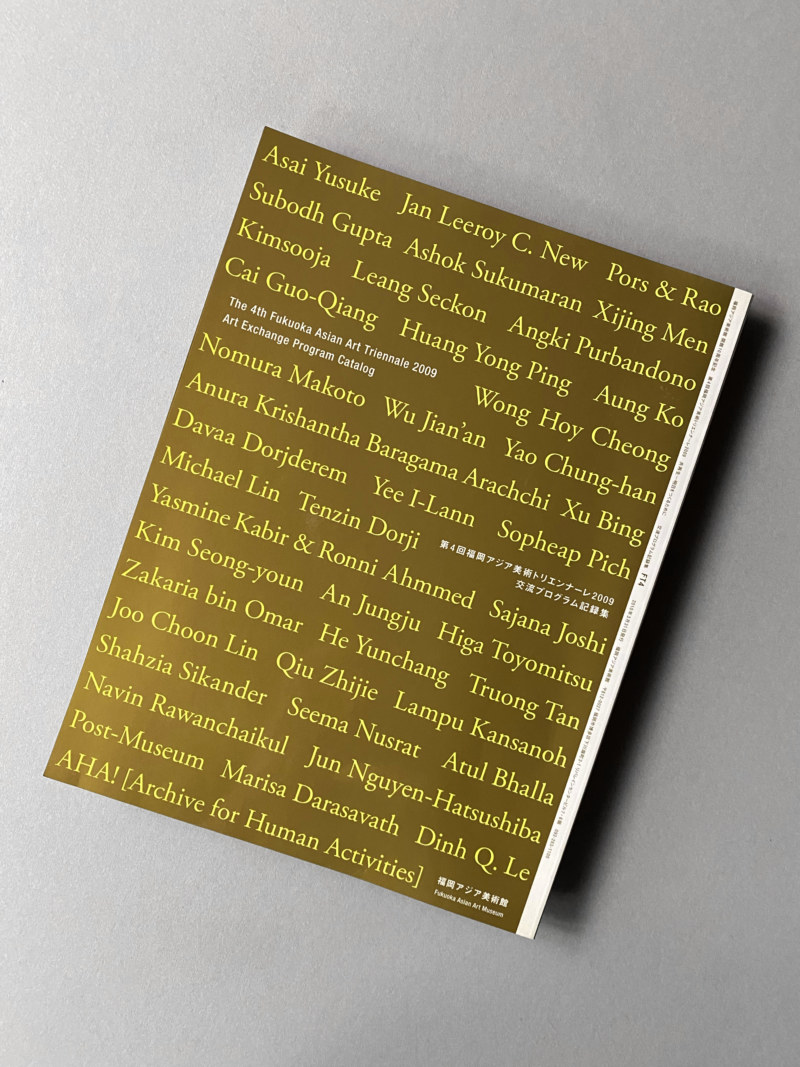 Asai Yusuke Jan Leeroy C. New Pors & Rao
Subodh Gupta Ashok Sukumaran Xijing Men
Kimsooja Leang Seckon Angki Purbandono
Cai Guo-Qiang Huang Yong Ping Aung Ko
The 4th Fukuoka Asian Art Triennale 2009
Art Exchange Program Catalog
Wong Hoy Cheong
Nomura Makoto Wu Jian'an Yao Chung-han
Anura Krishantha Baragama Arachchi Xu Bing
Davaa Dorjderem Yee I-Lann Sopheap Pich
Michael Lin Tenzin Dorji
第4回福岡アジア美術トリエンナーレ2009
交流プログラム記録集
Yasmine Kabir & Ronni Ahmmed Sajana Joshi
Kim Seong-youn An Jungju Higa Toyomitsu
Zakaria bin Omar He Yunchang Truong Tan
Joo Choon Lin Qiu Zhijie Lampu Kansanoh
Shahzia Sikander Seema Nusrat Atul Bhalla
Navin Rawanchaikul Jun Nguyen-Hatsushiba
Post-Museum Marisa Darasavath Dinh Q. Le
AHA! [Archive for Human Activities]
福岡アジア美術館
Fukuoka Asian Art Museum
交流プログラム記録集 FT4